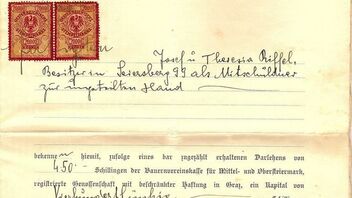 Josef u Theresia Riffel,
Besitzer in Seiersberg 99 als Mitschuldner
zur ungeteilten Hand
bekennen hiemit, zufolge eines bar zugezählt erhaltenen Darlehens von
450 Schillingen der Bauernvereinskasse für Mittel- und Obersteiermark,
registrierte Genossenschaft mit beschränkter Haftung in Graz, ein Kapital von